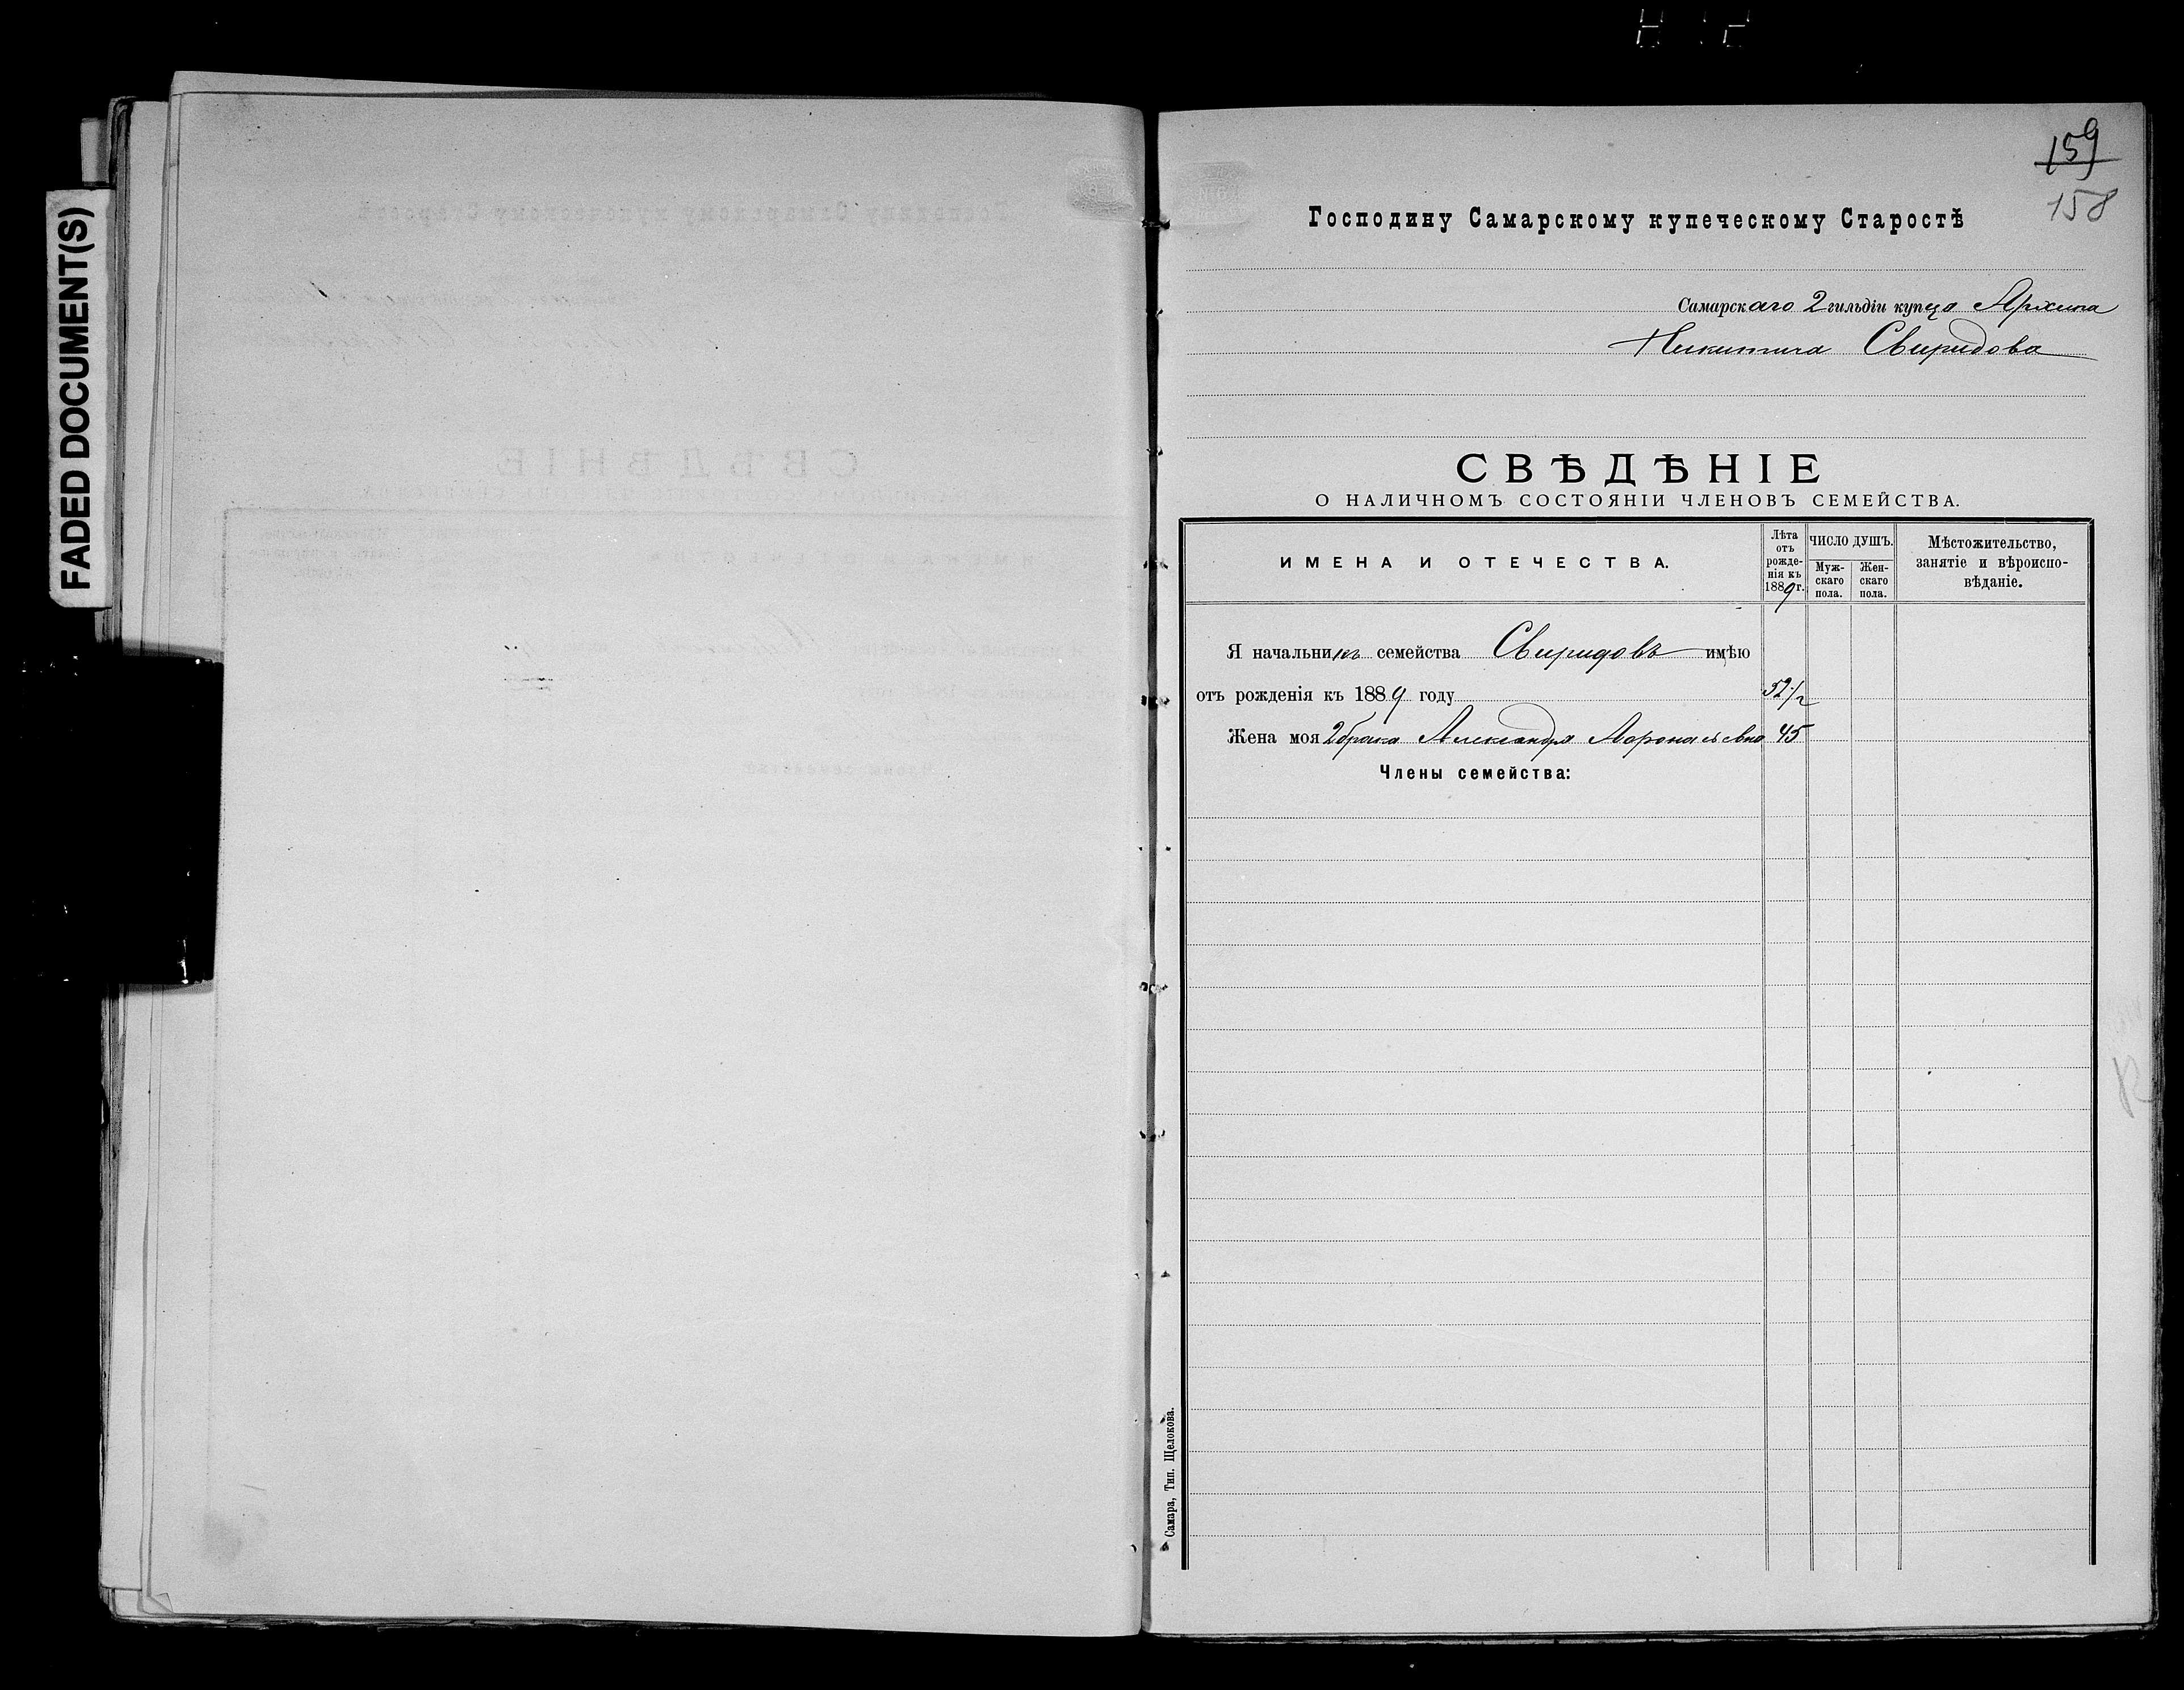 FADED DOCUMENT(S)
159
158
Господину Самарскому купеческому Старостѣ
Самарскаго 2 гильдіи купца Архипа
Никитича Свиридова
СВѢДѢНІЕ
О НАЛИЧНОМЪ СОСТОЯНІИ ЧЛЕНОВЪ СЕМЕЙСТВА.
ИМЕНА И ОТЕЧЕСТВА.
Лѣта
отъ
рожде-
нія къ
1889 г.
ЧИСЛО ДУШЪ.
Муж-
скаго
пола.
Жен-
скаго
пола.
Мѣстожительство,
занятіе и вѣроиспо-
вѣданіе.
Я начальникъ семейства Свиридовъ имѣю
отъ рожденія къ 1889 году 52 1/2
Жена моя 2 брака Александра 45
Члены семейства:
Самара, Тип. Щелокова.